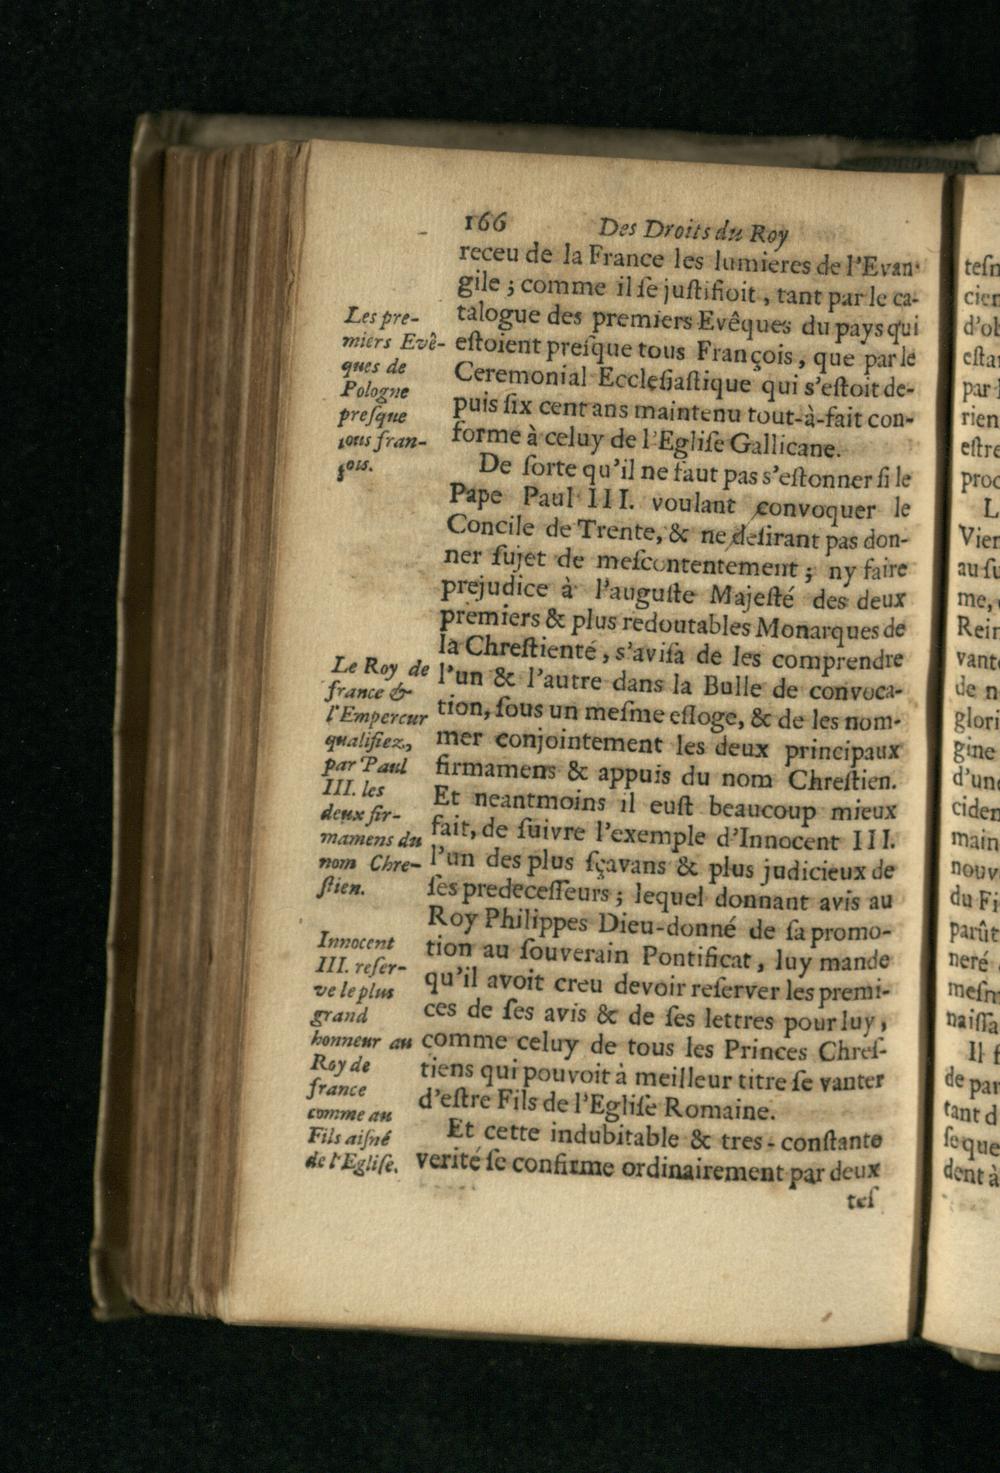 166 Des Droits du Roy
receu de la France les lumieres de l'Evan-
gile ; comme il ſe juſtifioit , tant par le ca-
talogue des premiers Evêques du pays qui
eſtoient preſque tous François , que par le
Ceremonial Eccleſiaſtique qui s'eſtoit de-
puis ſix cent ans maintenu tout-à-fait con-
forme à celuy de l'Egliſe Gallicane.
De ſorte qu'il ne faut pas s'eſtonner ſi le
Pape Paul III. voulant convoquer le
Concile de Trente, & ne deſirant pas don-
ner ſujet de meſcontentement ; ny faire
prejudice à l'auguſte Majeſté des deux
premiers & plus redoutables Monarques de
la Chreſtienté , s'aviſa de les comprendre
l'un & l'autre dans la Bulle de convoca-
tion, ſous un meſme eſloge, & de les nom-
mer conjointement les deux principaux
firmamens & appuis du nom Chreſtien.
Et neantmoins il euſt beaucoup mieux
fait, de ſuivre l'exemple d'Innocent III.
l'un des plus ſçavans & plus judicieux de
ſes predeceſſeurs ; lequel donnant avis au
Roy Philippes Dieu-donné de ſa promo-
tion au ſouverain Pontificat , luy mande
qu'il avoit creu devoir reſerver les premi-
ces de ſes avis & de ſes lettres pour luy ,
comme celuy de tous les Princes Chreſ-
tiens qui pouvoit à meilleur titre ſe vanter
d'eſtre Fils de l'Egliſe Romaine.
Et cette indubitable & tres-conſtante
verité ſe confirme ordinairement par deux
teſ
Les pre-
miers Evê-
ques de
Pologne
preſque
tous fran-
çois.
Le Roy de
france &
l'Empereur
qualifiez,
par Paul
III. les
deux fir-
mamens du
nom Chre-
ſtien.
Innocent
III. reſer-
ve le plus
grand
honneur au
Roy de
france
comme au
Fils aiſné
de l'Egliſe.
teſm
cien
d'ob
eſta
par
rien
eſtre
proc
L
Vien
au ſu
me,
Rein
vante
de n
glori
gine
d'une
ciden
main
nouv
du Fi
parût
neré
meſm
naiſſa
Il f
de par
tant d
ſe que
dent à